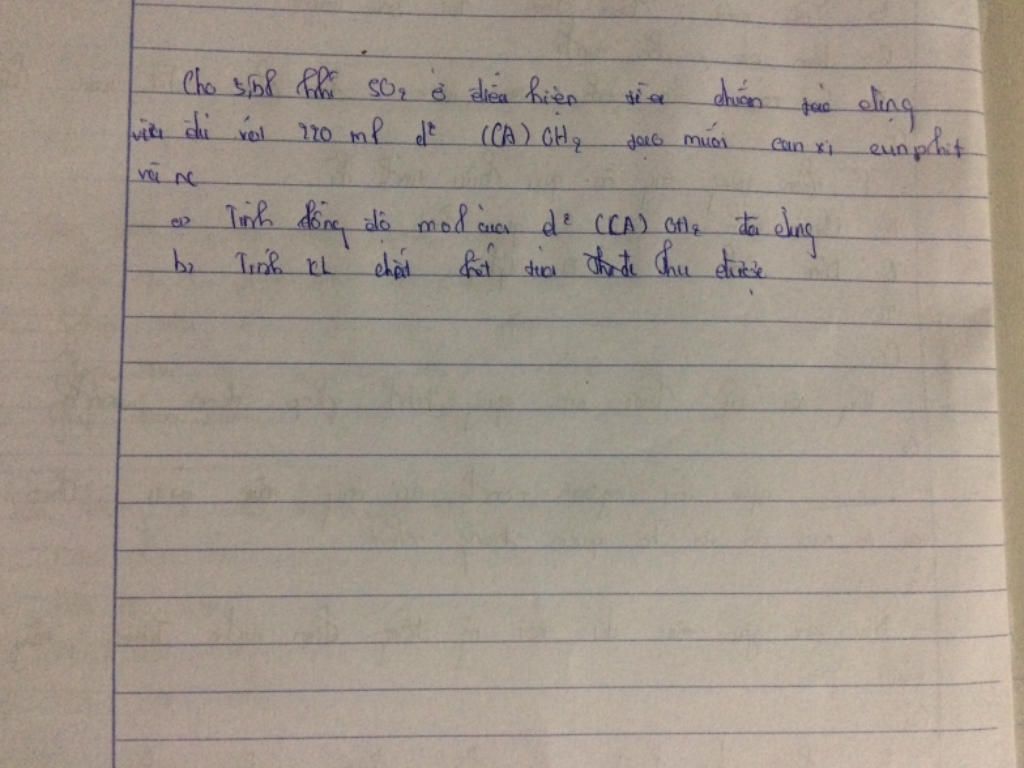 Cho khí SO2 ở điều kiện tiêu chuẩn tác dụng
vừa đủ với 220 ml d² (CA) OH2 tạo muối canxi sunphit
và nc
a, Tính nồng độ mol của d² (CA) OH2 đã dùng
b, Tính kl chất kết tủa thu được